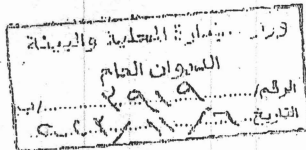 وزارة الإدارة المحلية والبيئة
الديوان العام
الرقم/ ٢٩١٩ /ب
التاريخ